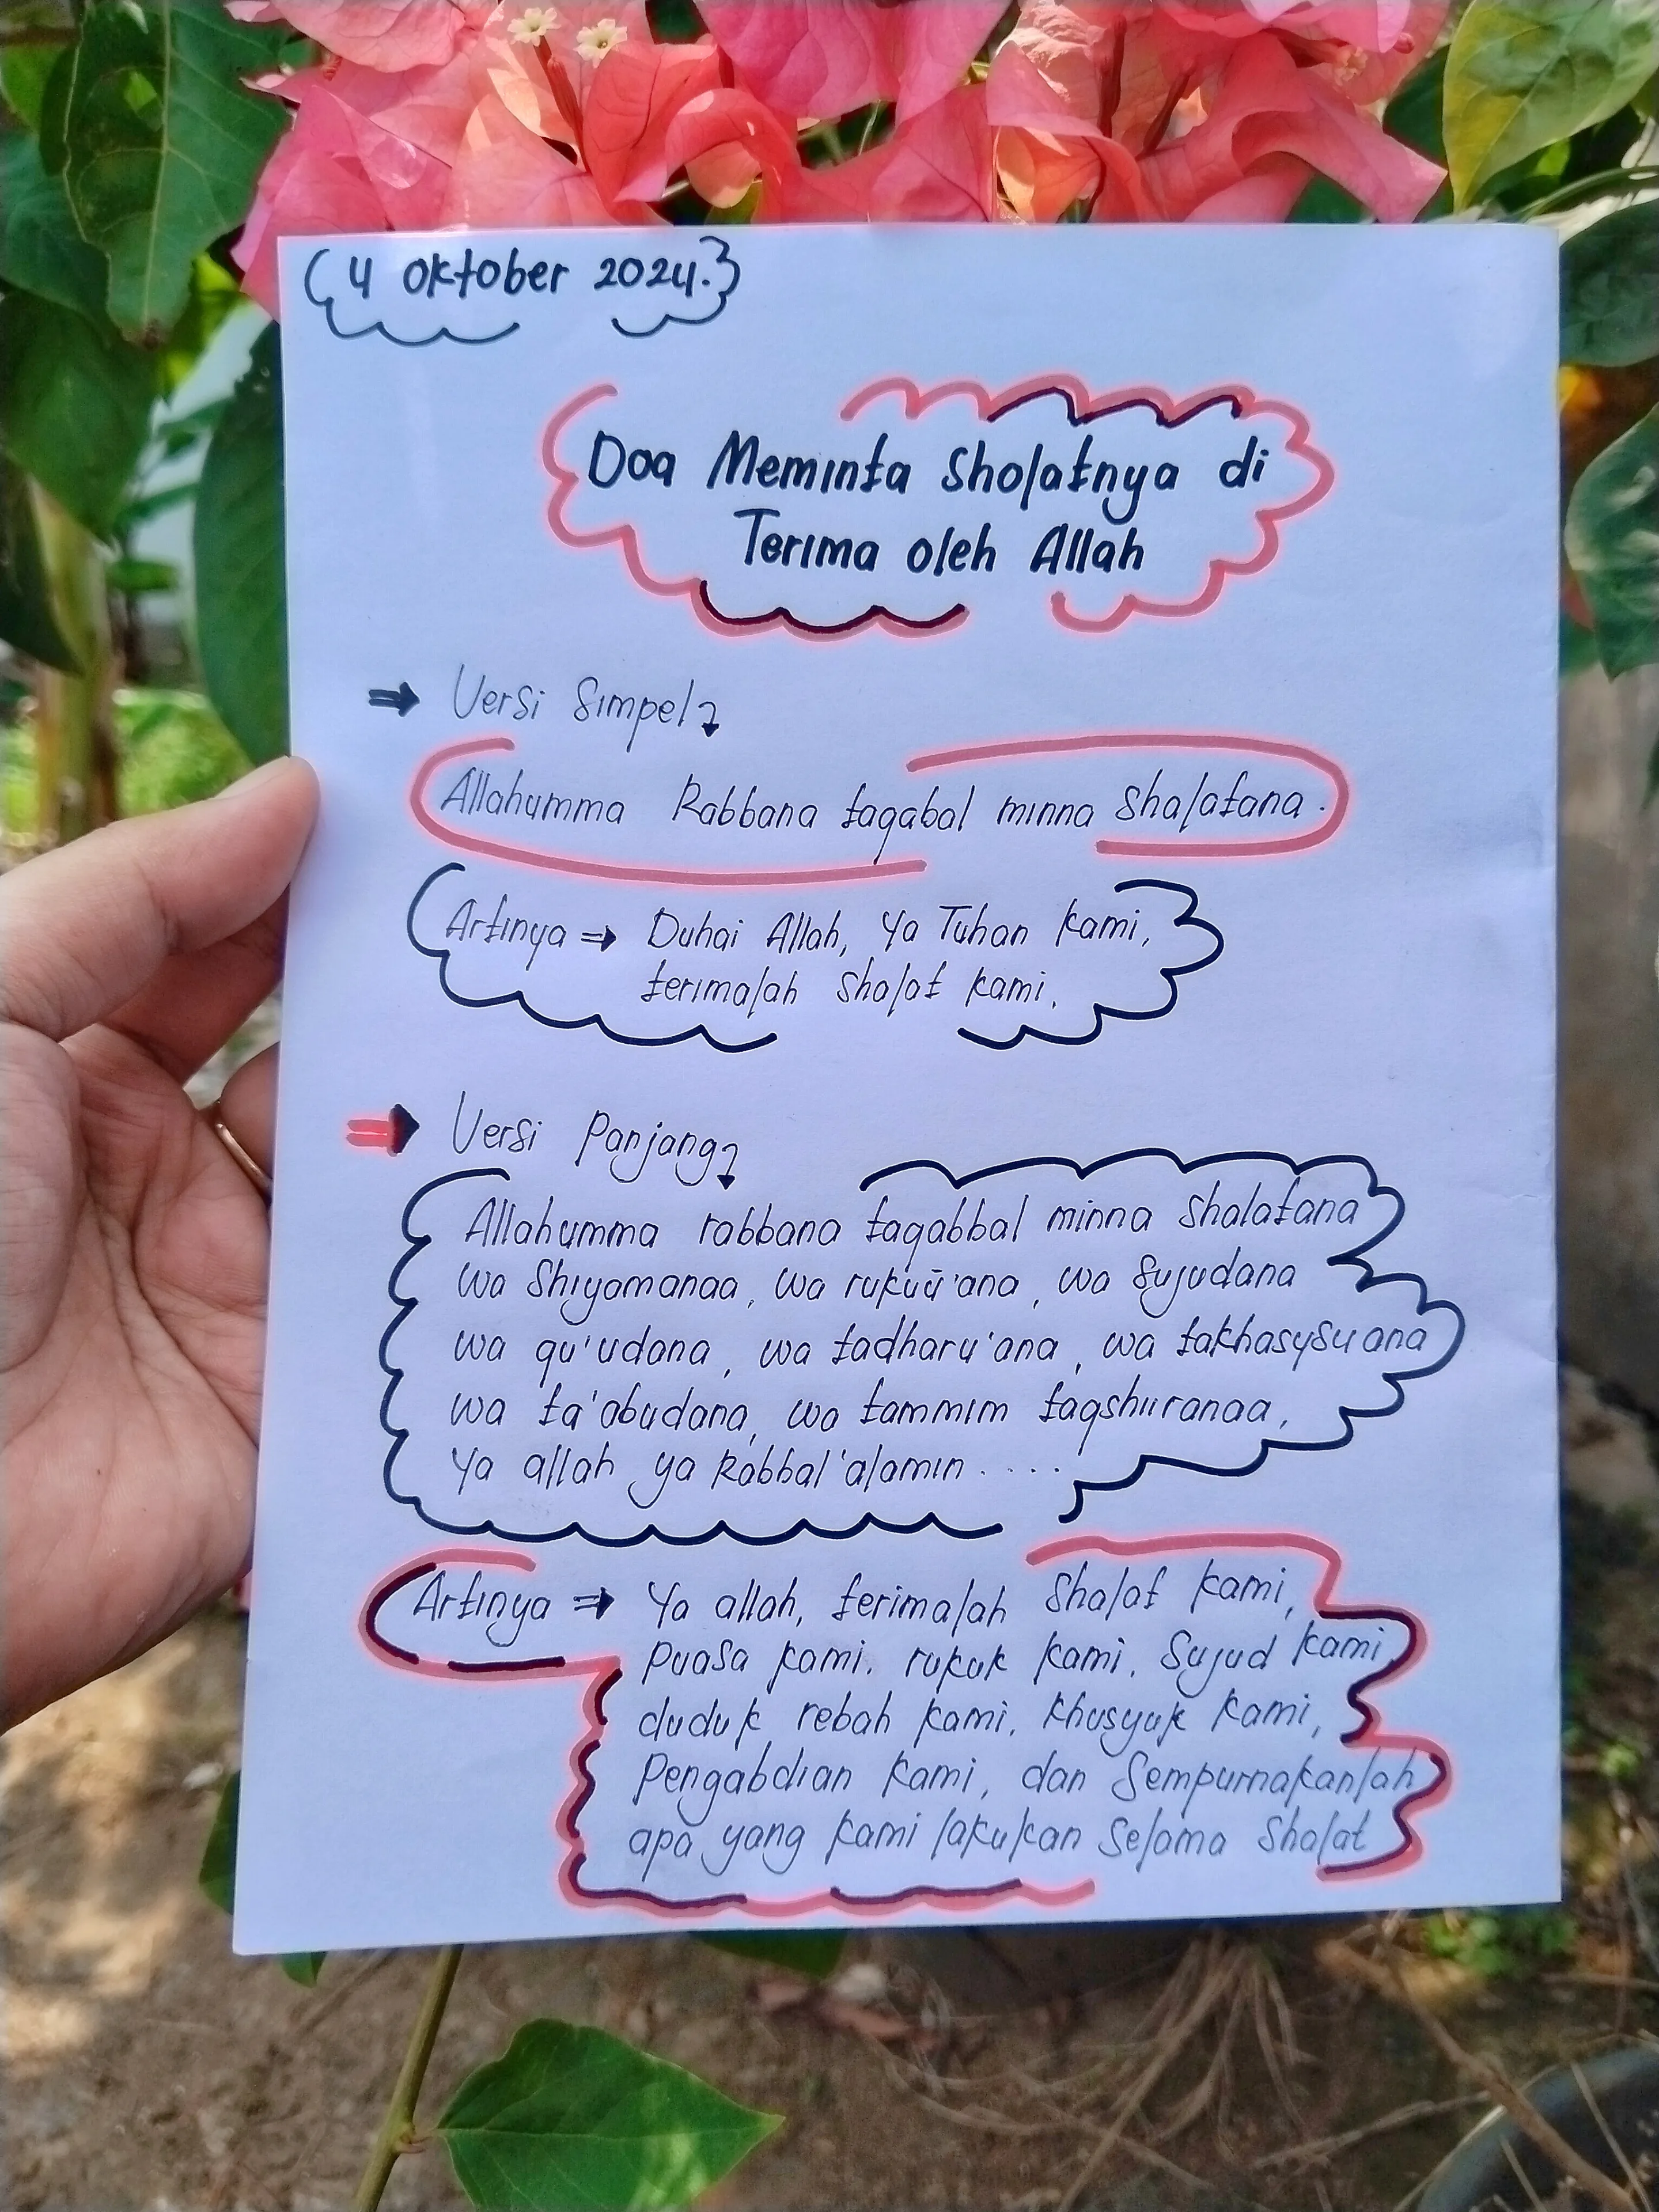 (4 Oktober 2024.}
Doa Meminta Sholatnya di
Terima oleh Allah
⇒ Versi Simpel
Allahumma Rabbana taqabal minna Shalatana.
Artinya ⇒ Duhai Allah, Ya Tuhan kami,
terimalah Sholat kami.
⇒ Versi Panjang
Allahumma rabbana taqabbal minna Shalatana
wa Shiyamanaa, wa rukuū'ana, wa Sujudana
wa qu'udana, wa tadharu'ana, wa takhasysuana
wa ta'abudana, wa tammim taqshiiranaa,
Ya allah ya Rabbal'alamin ....
Artinya ⇒ Ya allah, terimalah Shalat kami,
Puasa kami, rukuk kami, Sujud kami,
duduk rebah kami, khusyuk kami,
Pengabdian kami, dan Sempurnakanlah
apa yang kami lakukan Selama Shalat